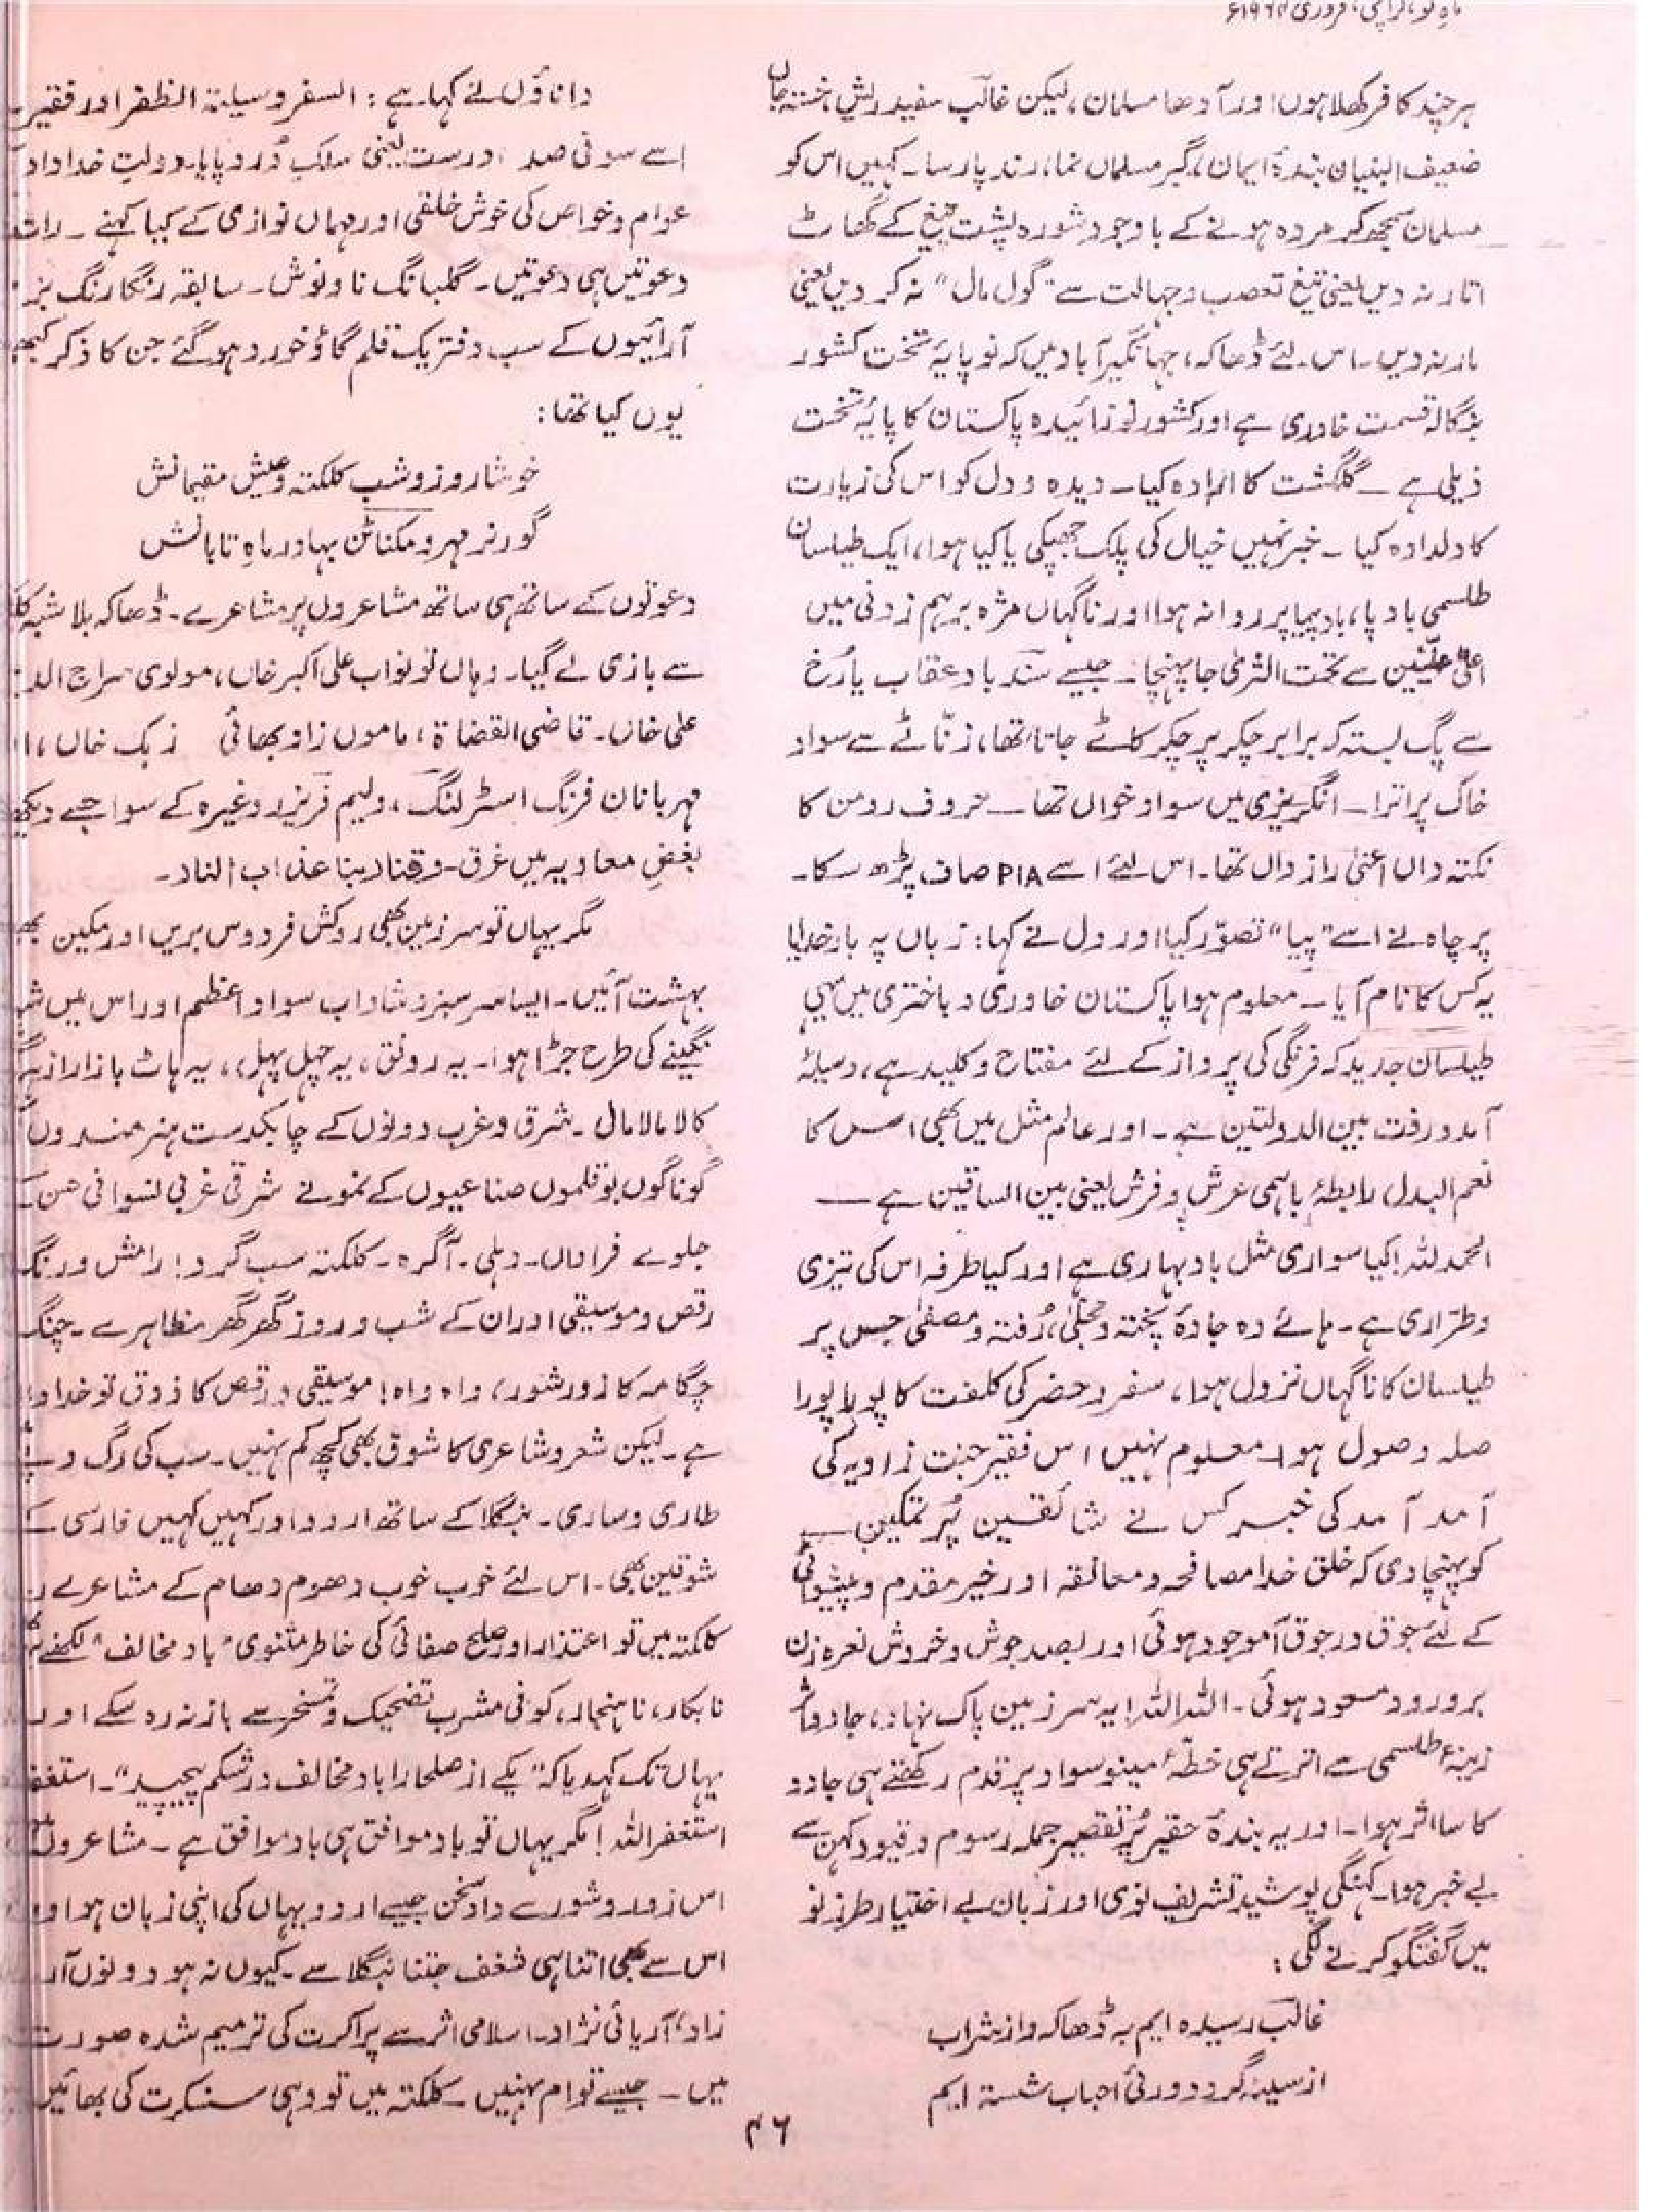 ماہِ نو، کراچی، فروری ۱۹۶۴ء
ہر چند کافر کھلا ہوں اور آدھا مسلمان، لیکن غالب سفید ریش، خستہ جاں
ضعیف البنیان بندۂ ایمان، گبر مسلماں نما، رند پارسا۔ کہیں اس کو
مسلمان سمجھ کر مردہ ہونے کے باوجود شورہ پشت تیغ کے گھاٹ
اتار نہ دیں یعنی تیغ تعصب و جہالت سے "گول مال" نہ کر دیں یعنی
مار نہ دیں۔ اس لئے ڈھاکہ، جہانگیر آباد میں کہ نو پایۂ تخت کشور
بنگالۂ قسمت خاوری ہے اور کشور نو زائیدہ پاکستان کا پایۂ تخت
ذیلی ہے ۔ گلگشت کا ارادہ کیا۔ دیدہ و دل کو اس کی زیارت
کا دلدادہ کیا ۔ خبر نہیں خیال کی پلک جھپکی یا کیا ہوا، ایک طیلسان
طلسمی باد پا، باد پیما پر روانہ ہوا اور ناگہاں مژہ برہم زدنی میں
اعلیٰ علیّین سے تحت الثریٰ جا پہنچا۔ جیسے سندباد عقاب یا رُخ
سے پگ بستہ کہ برابر چکر پر چکر کاٹے جاتا تھا، زنّاٹے سے سواد
خاک پر اترا۔ انگریزی میں سواد خواں تھا ۔ حروف رومن کا
نکتہ داں اعنی راز داں تھا۔ اس لئے اسے PIA صاف پڑھ سکا۔
پر چاہ نے اسے "پیا" تصوّر کیا اور دل نے کہا: زباں پہ بار خدایا
یہ کس کا نام آیا۔ معلوم ہوا پاکستان خاوری و باختری میں یہی
طیلسان جدید کہ فرنگی کی پرواز کے لئے مفتاح و کلید ہے، وسیلۂ
آمد و رفت بین الدولتین ہے۔ اور عالم مثل میں بھی اس کا
نعم البدل رابطۂ باہمی عرش و فرش یعنی بین الساقین ہے ۔
الحمد للہ! کیا سواری مثل باد بہاری ہے اور کیا طرفہ اس کی تیزی
و طرّاری ہے۔ ہائے وہ جادۂ پختہ و مجلّیٰ، رُفتہ و مصفیٰ جس پر
طیلسان کا ناگہاں نزول ہوا، سفر و حضر کی کلفت کا پورا پورا
صلہ وصول ہوا۔ معلوم نہیں اس فقیر جنت زاویہ کی
آمد آمد کی خبر کس نے شائقین پُر تمکین
کو پہنچا دی کہ خلق خدا مصافحہ و معانقہ اور خیر مقدم و پیشوائی
کے لئے جوق در جوق آ موجود ہوئی اور بصد جوش و خروش نعرہ زن
بر ورود مسعود ہوئی۔ اللہ اللہ! یہ سرزمین پاک نہاد، جادو اثر
زینۂ طلسمی سے اترتے ہی خطّۂ مینو سواد پر قدم رکھتے ہی جادو
کا سا اثر ہوا۔ اور یہ بندۂ حقیر پُر تقصیر جملہ رسوم و قیود کہن سے
بے خبر ہوا۔ کہنگی پوشید تشریف نوی اور زبان بے اختیار طرز نو
میں گفتگو کرنے لگی:
غالب رسیدہ ایم بہ ڈھاکہ و از شراب
از سینہ گرد دوریٔ احباب شستہ ایم
داناؤں نے کہا ہے: السفر وسیلة الظفر اور فقیر
اسے سو فی صد درست یعنی سلک دُر و پایا۔ دولتِ خداداد
عوام و خواص کی خوش خلقی اور مہماں نوازی کے کیا کہنے ۔ رات
دعوتیں ہی دعوتیں۔ گلبانگ نا و نوش۔ سابقہ رنگا رنگ بزم
آرائیوں کے سب دفتر یک قلم گاؤ خورد ہو گئے جن کا ذکر کبھی
یوں کیا تھا:
خوشا روز و شب کلکتہ و عیش مقیمانش
گورنر مہر و مکناٹن بہادر ماہِ تابانش
دعوتوں کے ساتھ ہی ساتھ مشاعروں پر مشاعرے۔ ڈھاکہ بلا شبہ
سے بازی لے گیا۔ وہاں تو نواب علی اکبر خاں، مولوی سراج الد
علی خاں۔ قاضی القضاة، ماموں زاد بھائی زبک خاں،
مہربانان فرنگ اسٹرلنگ، ولیم فریزر وغیرہ کے سوا جسے دیکھو
بغضِ معاویہ میں غرق۔ وقنا ربنا عذاب النار۔
مگر یہاں تو سرزمین بھی روکش فردوس بریں اور مکین بھی
بہشت آئیں۔ ایسا سرسبز و شاداب سواد اعظم اور اس میں شہر
نگینے کی طرح جڑا ہوا۔ یہ رونق، یہ چہل پہل، یہ ہاٹ بازار از
کالا مالا مال ۔ شرق و غرب دونوں کے چابکدست ہنرمندوں
گوناگوں بوقلموں صناعیوں کے نمونے شرقی غربی نسوانی حسن
جلوے فراواں۔ دہلی۔ آگرہ۔ کلکتہ سب گرد! رامش و رنگ
رقص و موسیقی اور ان کے شب و روز گھر گھر مظاہرے۔ چنگ
چگامہ کا زور شور، واہ واہ! موسیقی و رقص کا ذوق تو خدا
ہے۔ لیکن شعر و شاعری کا شوق بھی کچھ کم نہیں۔ سب کی رگ و پے
طاری و ساری۔ بنگلا کے ساتھ اردو اور کہیں کہیں فارسی کے
شوقین بھی۔ اس لئے خوب خوب دھوم دھام کے مشاعرے
کلکتہ میں تو اعتذار اور صلح صفائی کی خاطر مثنوی "باد مخالف" لکھنے
نابکار، ناہنجار، کوفی مشرب تضحیک و تمسخر سے باز نہ رہ سکے اور
یہاں تک کہہ دیا کہ "یکے از صلحا را باد مخالف در شکم پیچید"۔ استغفر
استغفر اللہ! مگر یہاں تو باد موافق ہی باد موافق ہے۔ مشاعروں
اس زور و شور سے داد سخن جیسے اردو یہاں کی اپنی زبان ہو اور
اس سے بھی اتنا ہی شغف جتنا بنگلا سے۔ کیوں نہ ہو دونوں
زاد، آریائی نژاد۔ اسلامی اثر سے پراکرت کی ترمیم شدہ صورت
میں ۔ جیسے توام بہنیں ۔ کلکتہ میں تو وہی سنسکرت کی بھائیں
۴۶